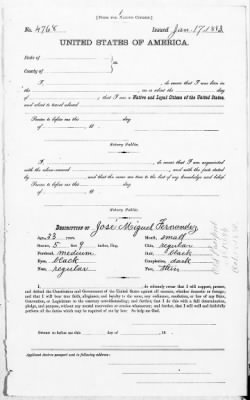 [FORM FOR NATIVE CITIZEN.]
No. 4768 Issued Jan. 17, 1883
UNITED STATES OF AMERICA.
State of
County of
ss
I, , do swear that I was born in
on or about the day
of , that I am a Native and Loyal Citizen of the United States,
and about to travel abroad
Sworn to before me this day
of , 18 .
Notary Public.
I, , do swear that I am acquainted
with the above named , and with the facts stated
by , and that the same are true to the best of my knowledge and belief.
Sworn to before me this day
of , 18 .
Notary Public.
DESCRIPTION OF Jose Miguel Fernandez
Age, 33 years Mouth, small
Stature, 5 feet 9 inches, Eng. Chin, regular
Forehead, medium Hair, black
Eyes, black Complexion, dark
Nose, regular Face, thin
I, , do solemnly swear that I will support, protect,
and defend the Constitution and Government of the United States against all enemies, whether domestic or foreign;
and that I will bear true faith, allegiance, and loyalty to the same, any ordinance, resolution, or law of any State,
Convention, or Legislature to the contrary notwithstanding; and further, that I do this with a full determination,
pledge, and purpose, without any mental reservation or evasion whatsoever; and further, that I will well and faithfully
perform all the duties which may be required of me by law. So help me God.
Sworn to before me this day of , 18 .
Applicant desires passport sent to following address: